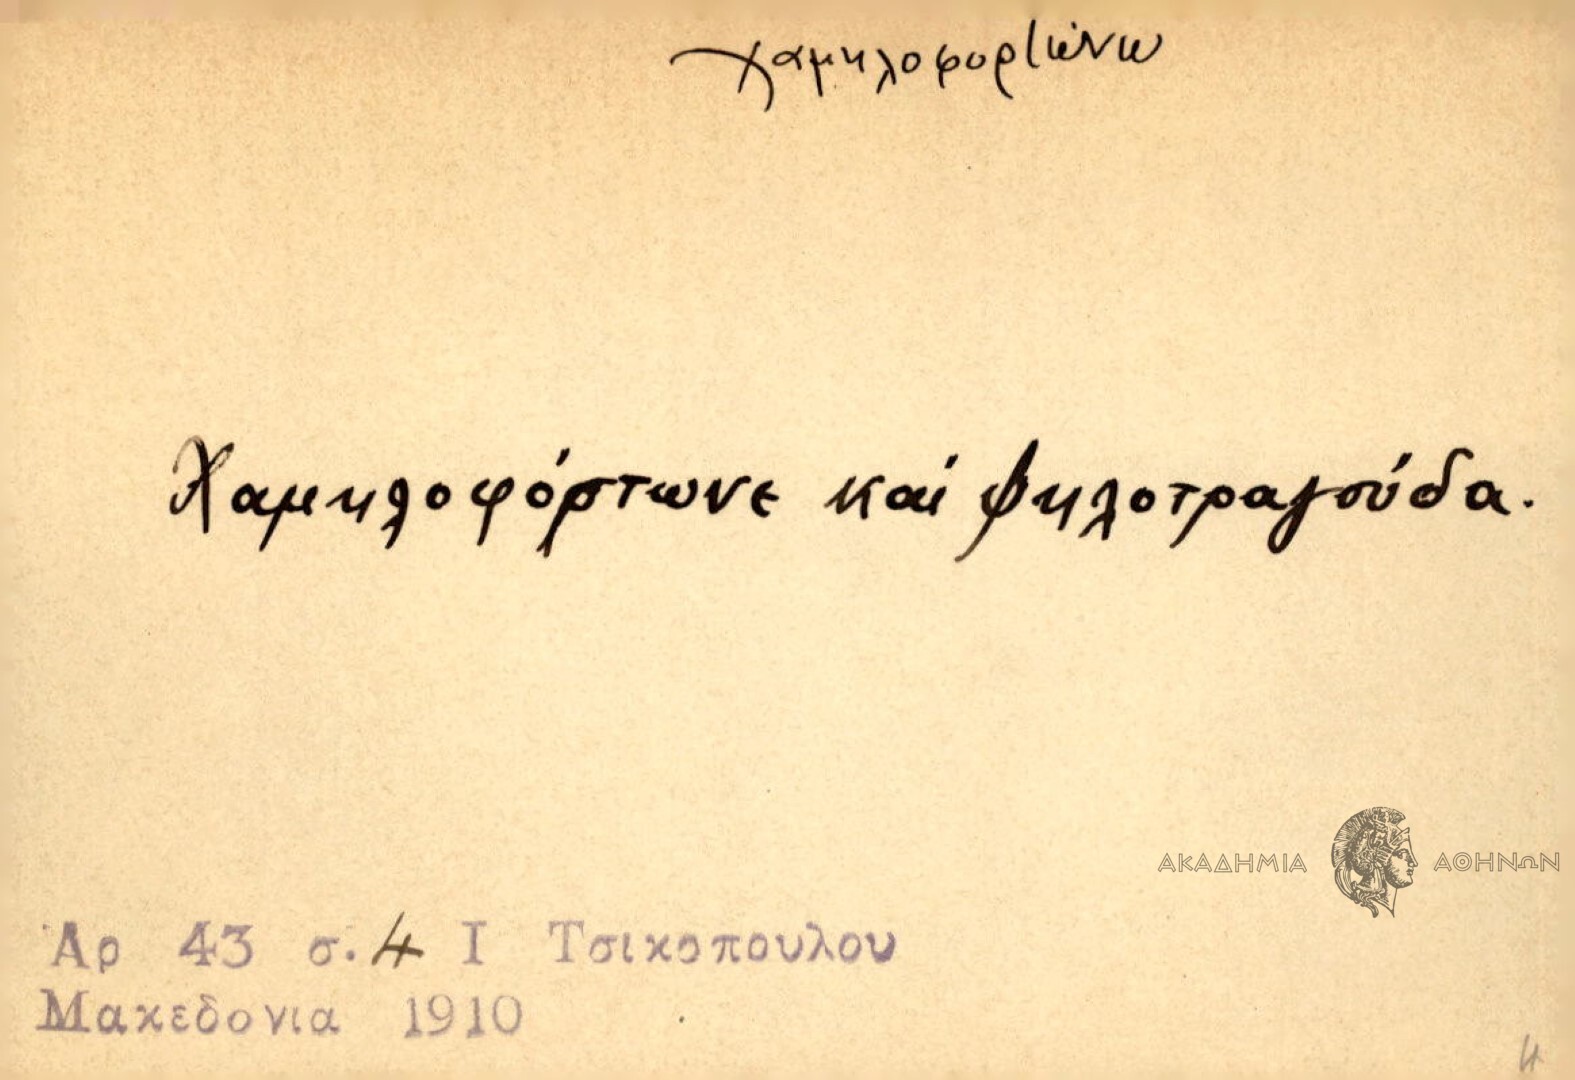 χαμηλοφορτώνω
Χαμηλοφόρτωνε καί ψηλοτραγούδα.
ΑΚΑΔΗΜΙΑ ΑΘΗΝΩΝ
Ἀρ 43 σ. 4 Ι Τσικοπουλου
Μακεδονια 1910